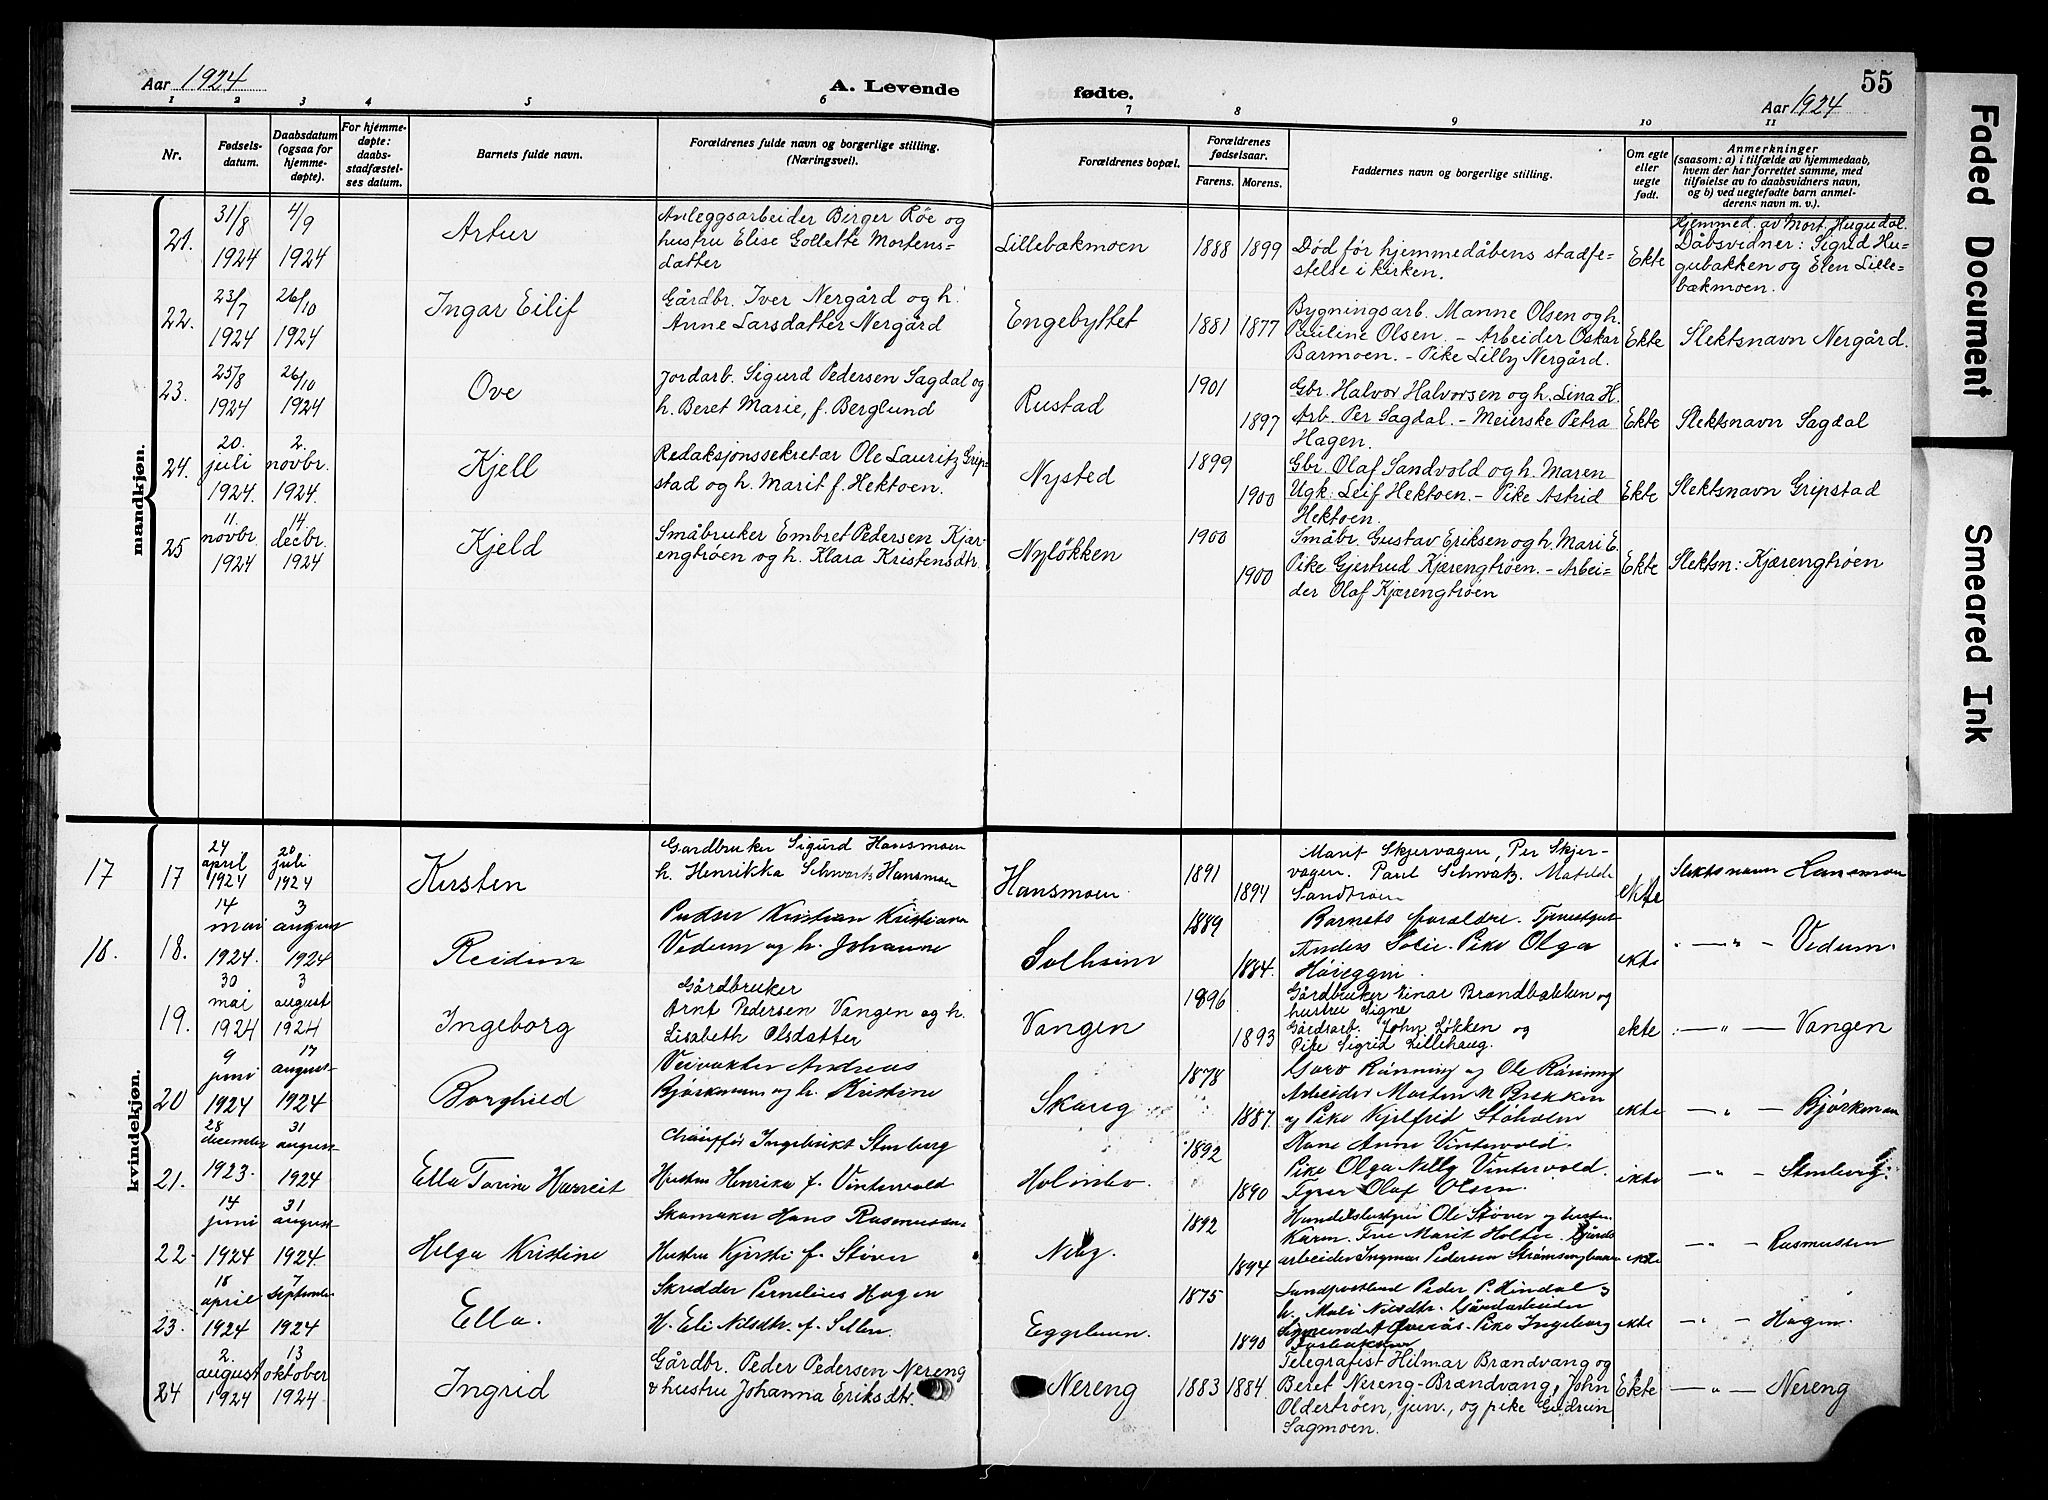 Aar 1924
A. Levende
fødte.
55
Aar 1924
1 2 3 4 5 6 7 8 9 10 11
Nr.
Fødsels-
datum.
Daabsdatum
(ogsaa for
hjemme-
døpte).
For hjemme-
døpte:
daabs-
stadfæstel-
ses datum.
Barnets fulde navn.
Forældrenes fulde navn og borgerlige stilling.
(Næringsvei).
Forældrenes bopæl.
Forældrenes
fødselsaar.
Farens. Morens.
Faddernes navn og borgerlige stilling.
Om egte
eller
uegte
født.
Anmerkninger
(saasom: a) i tilfælde av hjemmedaab,
hvem der har forrettet samme, med
tilføielse av to daabsvidners navn,
og b) ved uegtefødte barn anmel-
derens navn m. v.).
mandkjøn.
21.
31/8
1924
4/9
1924
Artur
Anleggsarbeider Birger Röe og
hustru Elise Gollette Mortens-
datter
Lillebakmoen
1888 1899
Död för hjemmedåbens stadfe-
stelse i kirken.
Ekte
Hjemmed. av Mort. Hugudal.
Dåbsvidner: Sigrid Hu-
gubakken og Elen Lille-
bakmoen.
22.
23/7
1924
26/10
1924
Ingar Eilif
Gårdbr. Iver Nergård og h.
Anne Larsdatter Nergård
Engebyttet
1881 1877
Bygningsarb. Manne Olsen og h.
Pauline Olsen. - Arbeider Oskar
Barmoen. - Pike Lilly Nergård.
Ekte
Slektsnavn Nergård.
23.
25/8
1924
26/10
1924
Ove
Jordarb. Sigurd Pedersen Sagdal og
h. Beret Marie, f. Berglund
Rustad
1901
1897
Gbr. Halvor Halvorsen og h. Lina H.
Arb. Per Sagdal. - Meierske Petra
Hagen.
Ekte
Slektsnavn Sagdal
24.
20.
juli
1924.
2.
novbr.
1924.
Kjell
Redaksjonssekretær Ole Lauritz Grip-
stad og h. Marit f. Hektoen.
Nysted
1899
1900
Gbr. Olaf Sandvold og h. Maren
Ugk. Leif Hektoen. - Pike Astrid
Hektoen.
Ekte
Slektsnavn Gripstad
25
11.
novbr.
1924
14.
decbr.
1924
Kjeld
Småbruker Embret Pedersen Kjær-
engtröen og h. Klara Kristensdtr.
Nylökken
1900
1900
Småbr. Gustav Eriksen og h. Mari E.
Pike Gjertrud Kjærengtröen. - Arbei-
der Olaf Kjærengtröen
Ekte
Slektsn: Kjærengtröen
kvindekjøn.
17
17
24
april
1924
20
juli
1924
Kirsten
Gardbruker Sigurd Hansmoen
h. Henrikka Schwartz Hansmoen
Hansmoen
1891
1894
Marit Skjervagen, Per Skjer-
vagen. Paul Schwatz. Matilde
Sandtröen
ekte
Slektsnavn Hansmoen
18.
18.
14
mai
1924.
3
august
1924
Reidun
Kristian Kristiansen
Vedum og h. Johanne
Solheim
1889
1884.
Barnets foraldre.
Anders Solie. Pike Olga
ekte
- " - Vedum.
19.
30
mai
1924
3
august
1924
Ingeborg
Gårdbruker
Arnt Pedersen Vangen og h.
Lisabeth Olsdatter
Vangen
1896
1893
Gårdbruker Einar Brandbækken og
hustru Signe
Gårdsarb. John Lökken og
Pike Sigrid Lillehaug.
ekte
- " - Vangen
20
9
juni
1924
17
august
1924
Borghild
Veivokter Andreas
Bjørkman og h. Kristine
Skaug
1878
1887.
Guro Rönning og Ole Rönning
Arbeider Morten M Brekken
og Pike Kjelfrid Støholen
ekte
- " - Bjørkman
21.
28
december
1923.
31
august
1924
Ella Torine Harriet
Chauffør Ingebrikt Stenberg
Hustru Henrika f. Vintervold
Holmbo.
1892
1890
Anne Vintervold.
Pike Olga Nelly Vintervold.
Fyrer Olaf Olsen.
ekte
- " - Stenberg.
22.
14
juni
1924
31
august
1924
Helga Kristine
Skomaker Hans Rasmussen
Hustru Kjersti f. Støver
Neby
1892
1894
Handelsbestyrer Ole Støver og hustru
Karen. Fru Marit Holte. Gårds
arbeider Ingmar Pedersen
ekte
- " - Rasmussen
23.
18
april
1924
7
september
1924
Ella.
Skredder Pernelius Hagen
H. Eli Nilsdtr. f.
Eggeluen.
1875
1890
Landpostbud Peder P. Hindal og
h. Mali Nilsdtr. Gårdarbeider
Pike Ingeborg
ekte
- " - Hagen.
24
2.
august
1924
13
oktober
1924.
Ingrid
Gårdbr. Peder Pedersen Nereng
& hustru Johanna Eriksdtr.
Nereng
1883 1884.
Telegrafist Hilmar Brændvang og
Beret Nereng-Brændvang, John
Oldertröen, jun., og pike Gudrun
Sagmoen.
Ekte
- " - Nereng
Faded Document
Smeared Ink